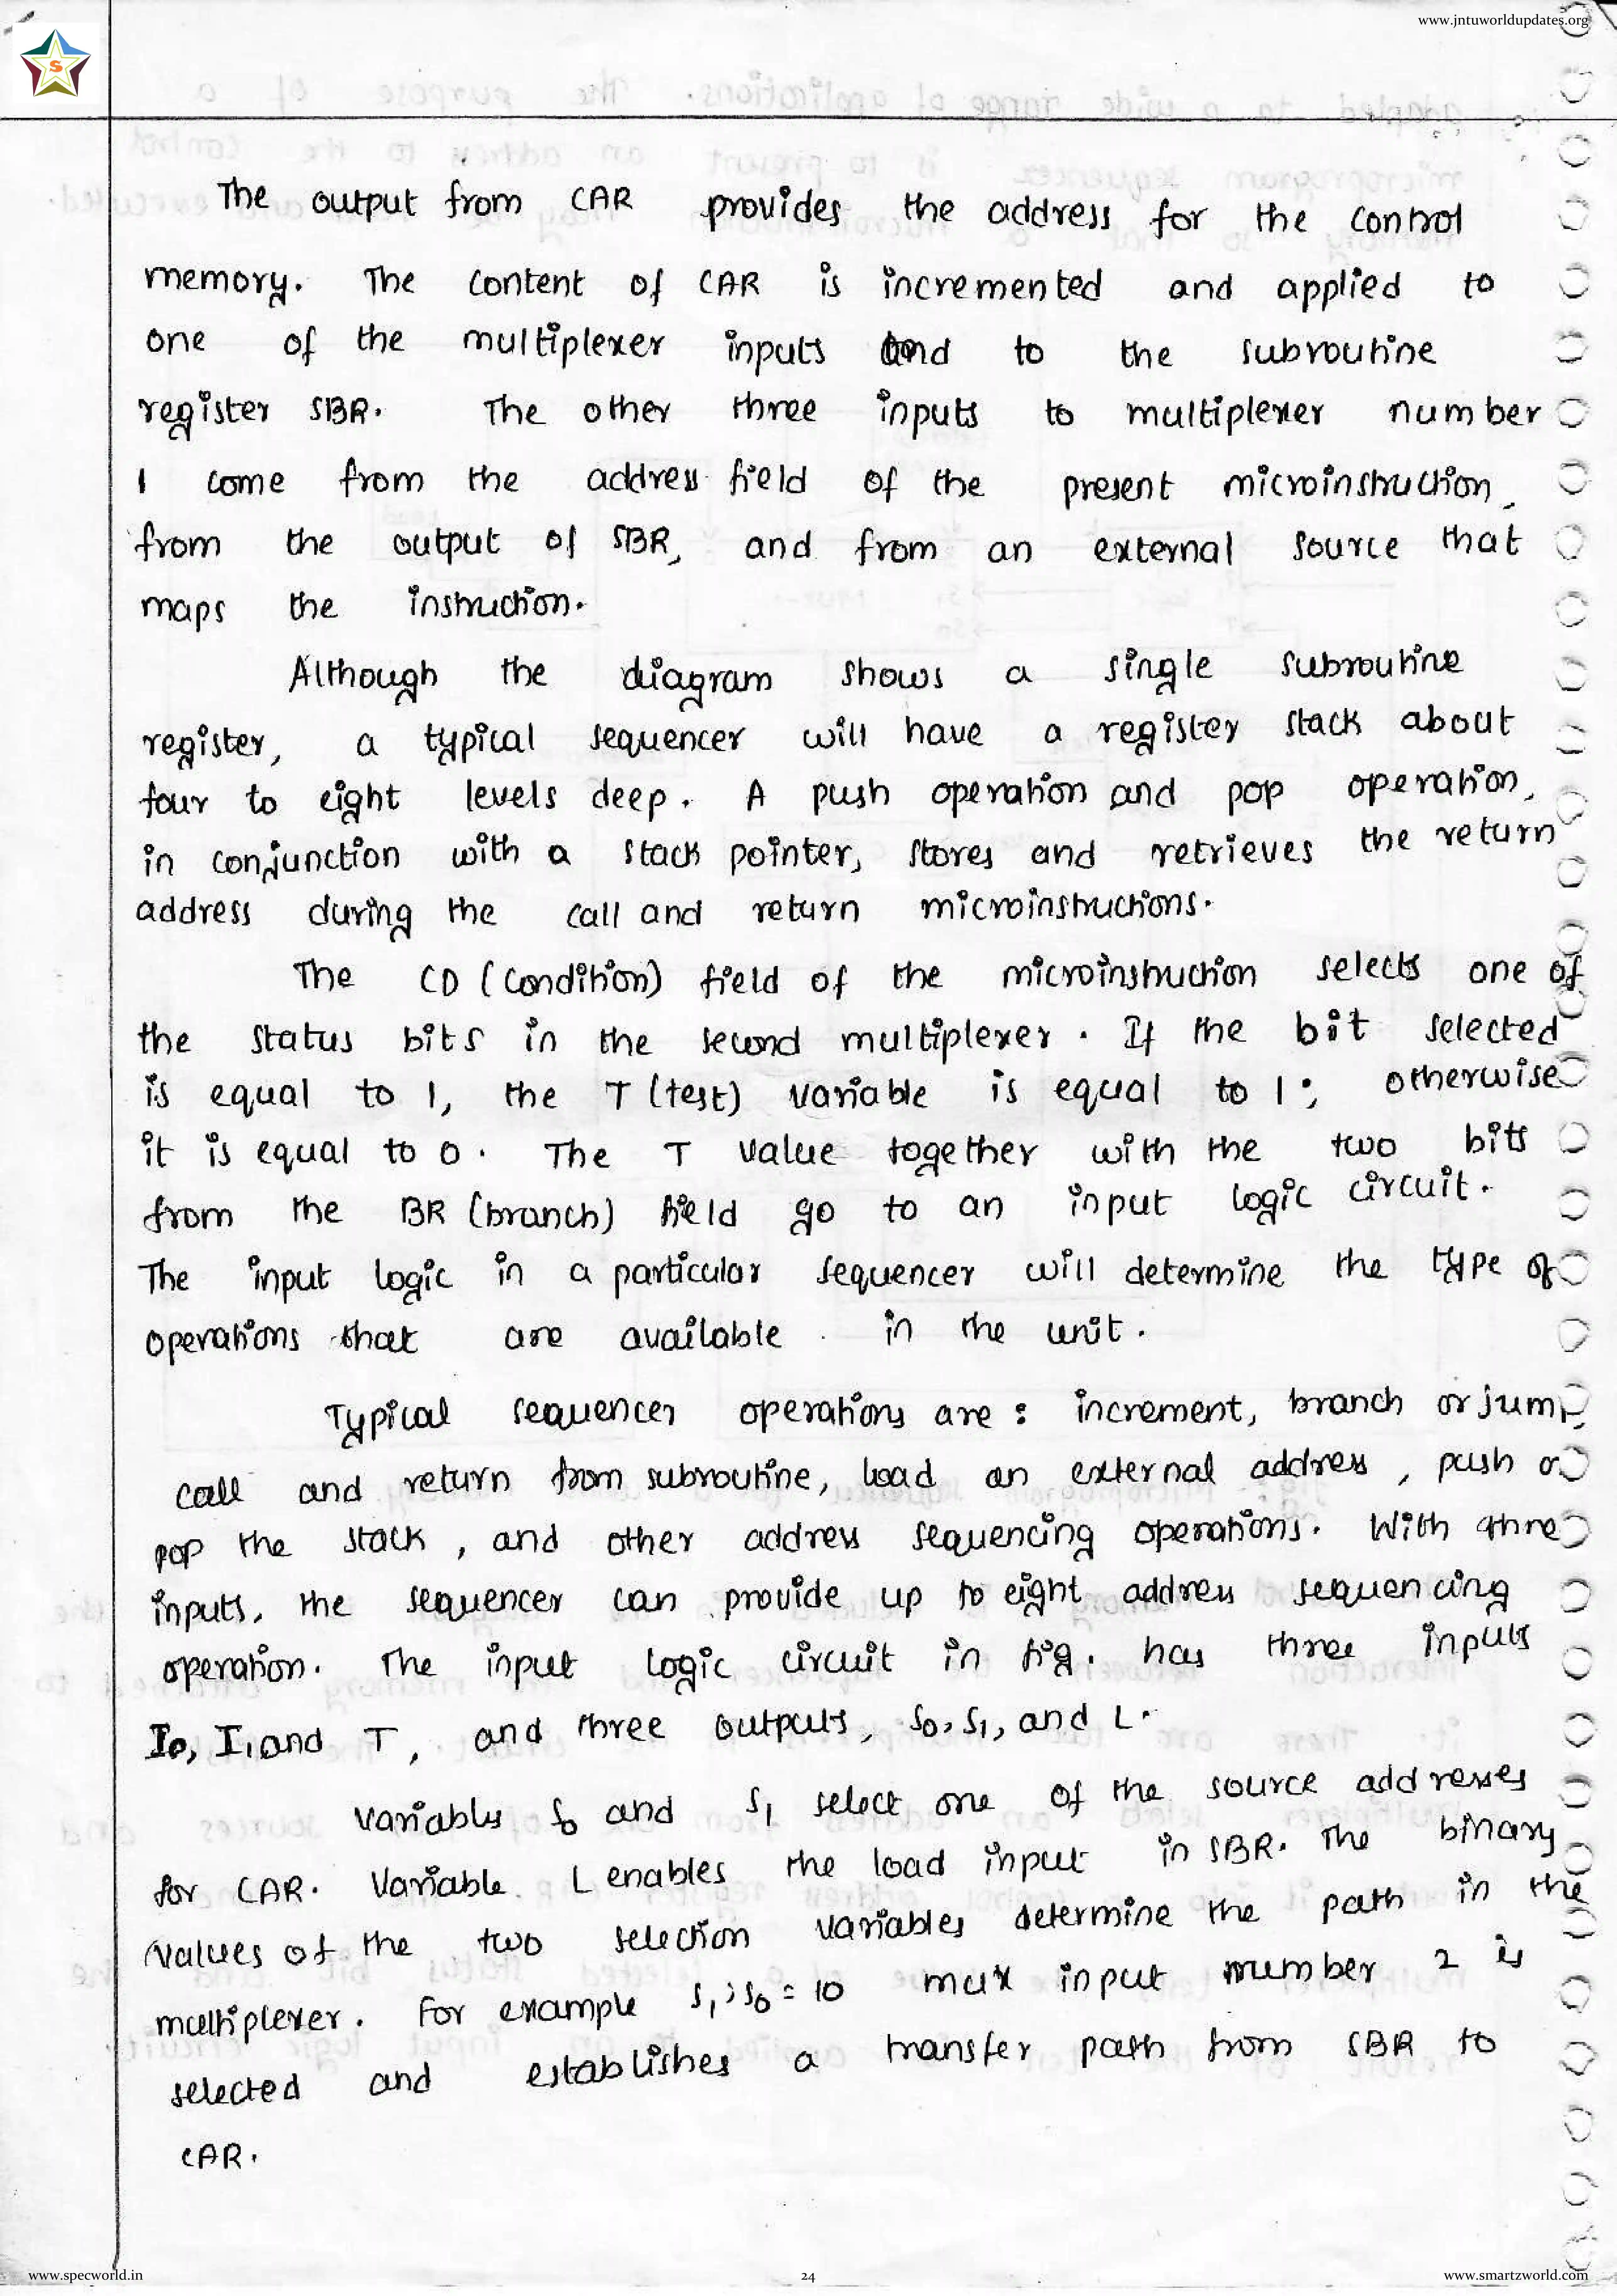 www.jntuworldupdates.org
S
The output from CAR provides the address for the control
memory. The content of CAR is incremented and applied to
one of the multiplexer inputs and to the subroutine
register SBR. The other three inputs to multiplexer number
1 come from the address field of the present microinstruction,
from the output of SBR, and from an external source that
maps the instruction.
Although the diagram shows a single subroutine
register, a typical sequencer will have a register stack about
four to eight levels deep. A push operation and pop operation,
in conjunction with a stack pointer, stores and retrieves the return
address during the call and return microinstructions.
The CD (Condition) field of the microinstruction selects one of
the status bits in the second multiplexer. If the bit selected
is equal to 1, the T (test) variable is equal to 1; otherwise
it is equal to 0. The T value together with the two bits
from the BR (branch) field go to an input logic circuit.
The input logic in a particular sequencer will determine the type of
operations that are available in the unit.
Typical sequencer operations are : increment, branch or jump,
call and return from subroutine, load an external address, push or
pop the stack, and other address sequencing operations. With three
inputs, the sequencer can provide up to eight address sequencing
operation. The input logic circuit in fig. has three inputs
I0, I1 and T, and three outputs, S0, S1, and L.
Variables S0 and S1 select one of the source addresses
for CAR. Variable L enables the load input in SBR. The binary
values of the two selection variables determine the path in the
multiplexer. For example S1, S0 = 10 mux input number 2 is
selected and establishes a transfer path from SBR to
CAR.
www.specworld.in
24
www.smartzworld.com